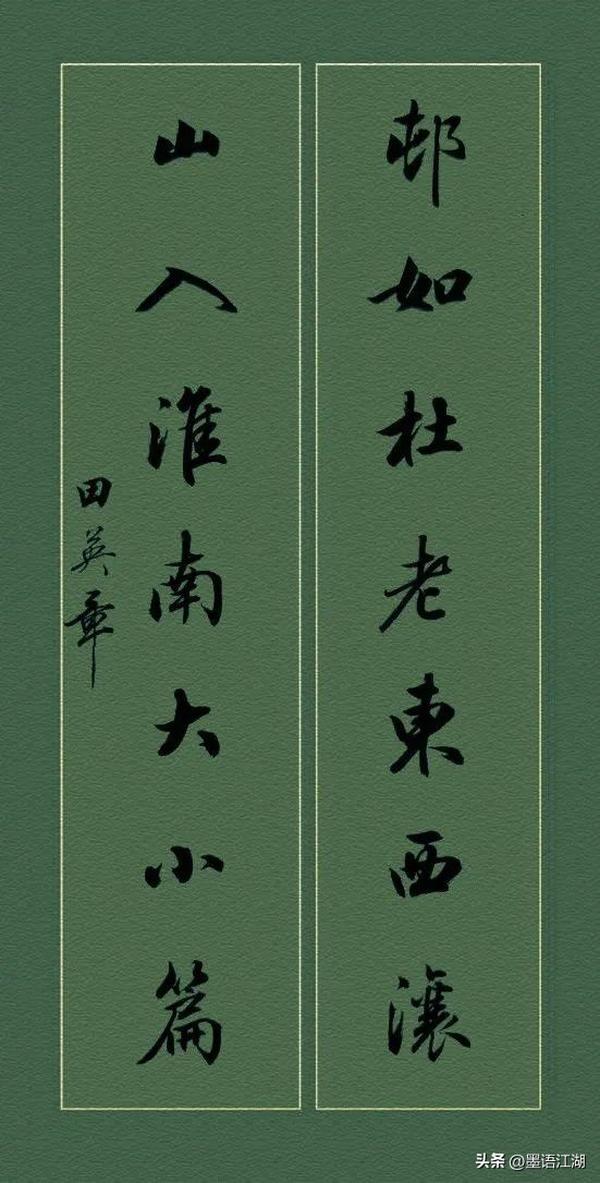 邨如杜老東西瀼
山入淮南大小篇
田英章
头条 @墨语江湖